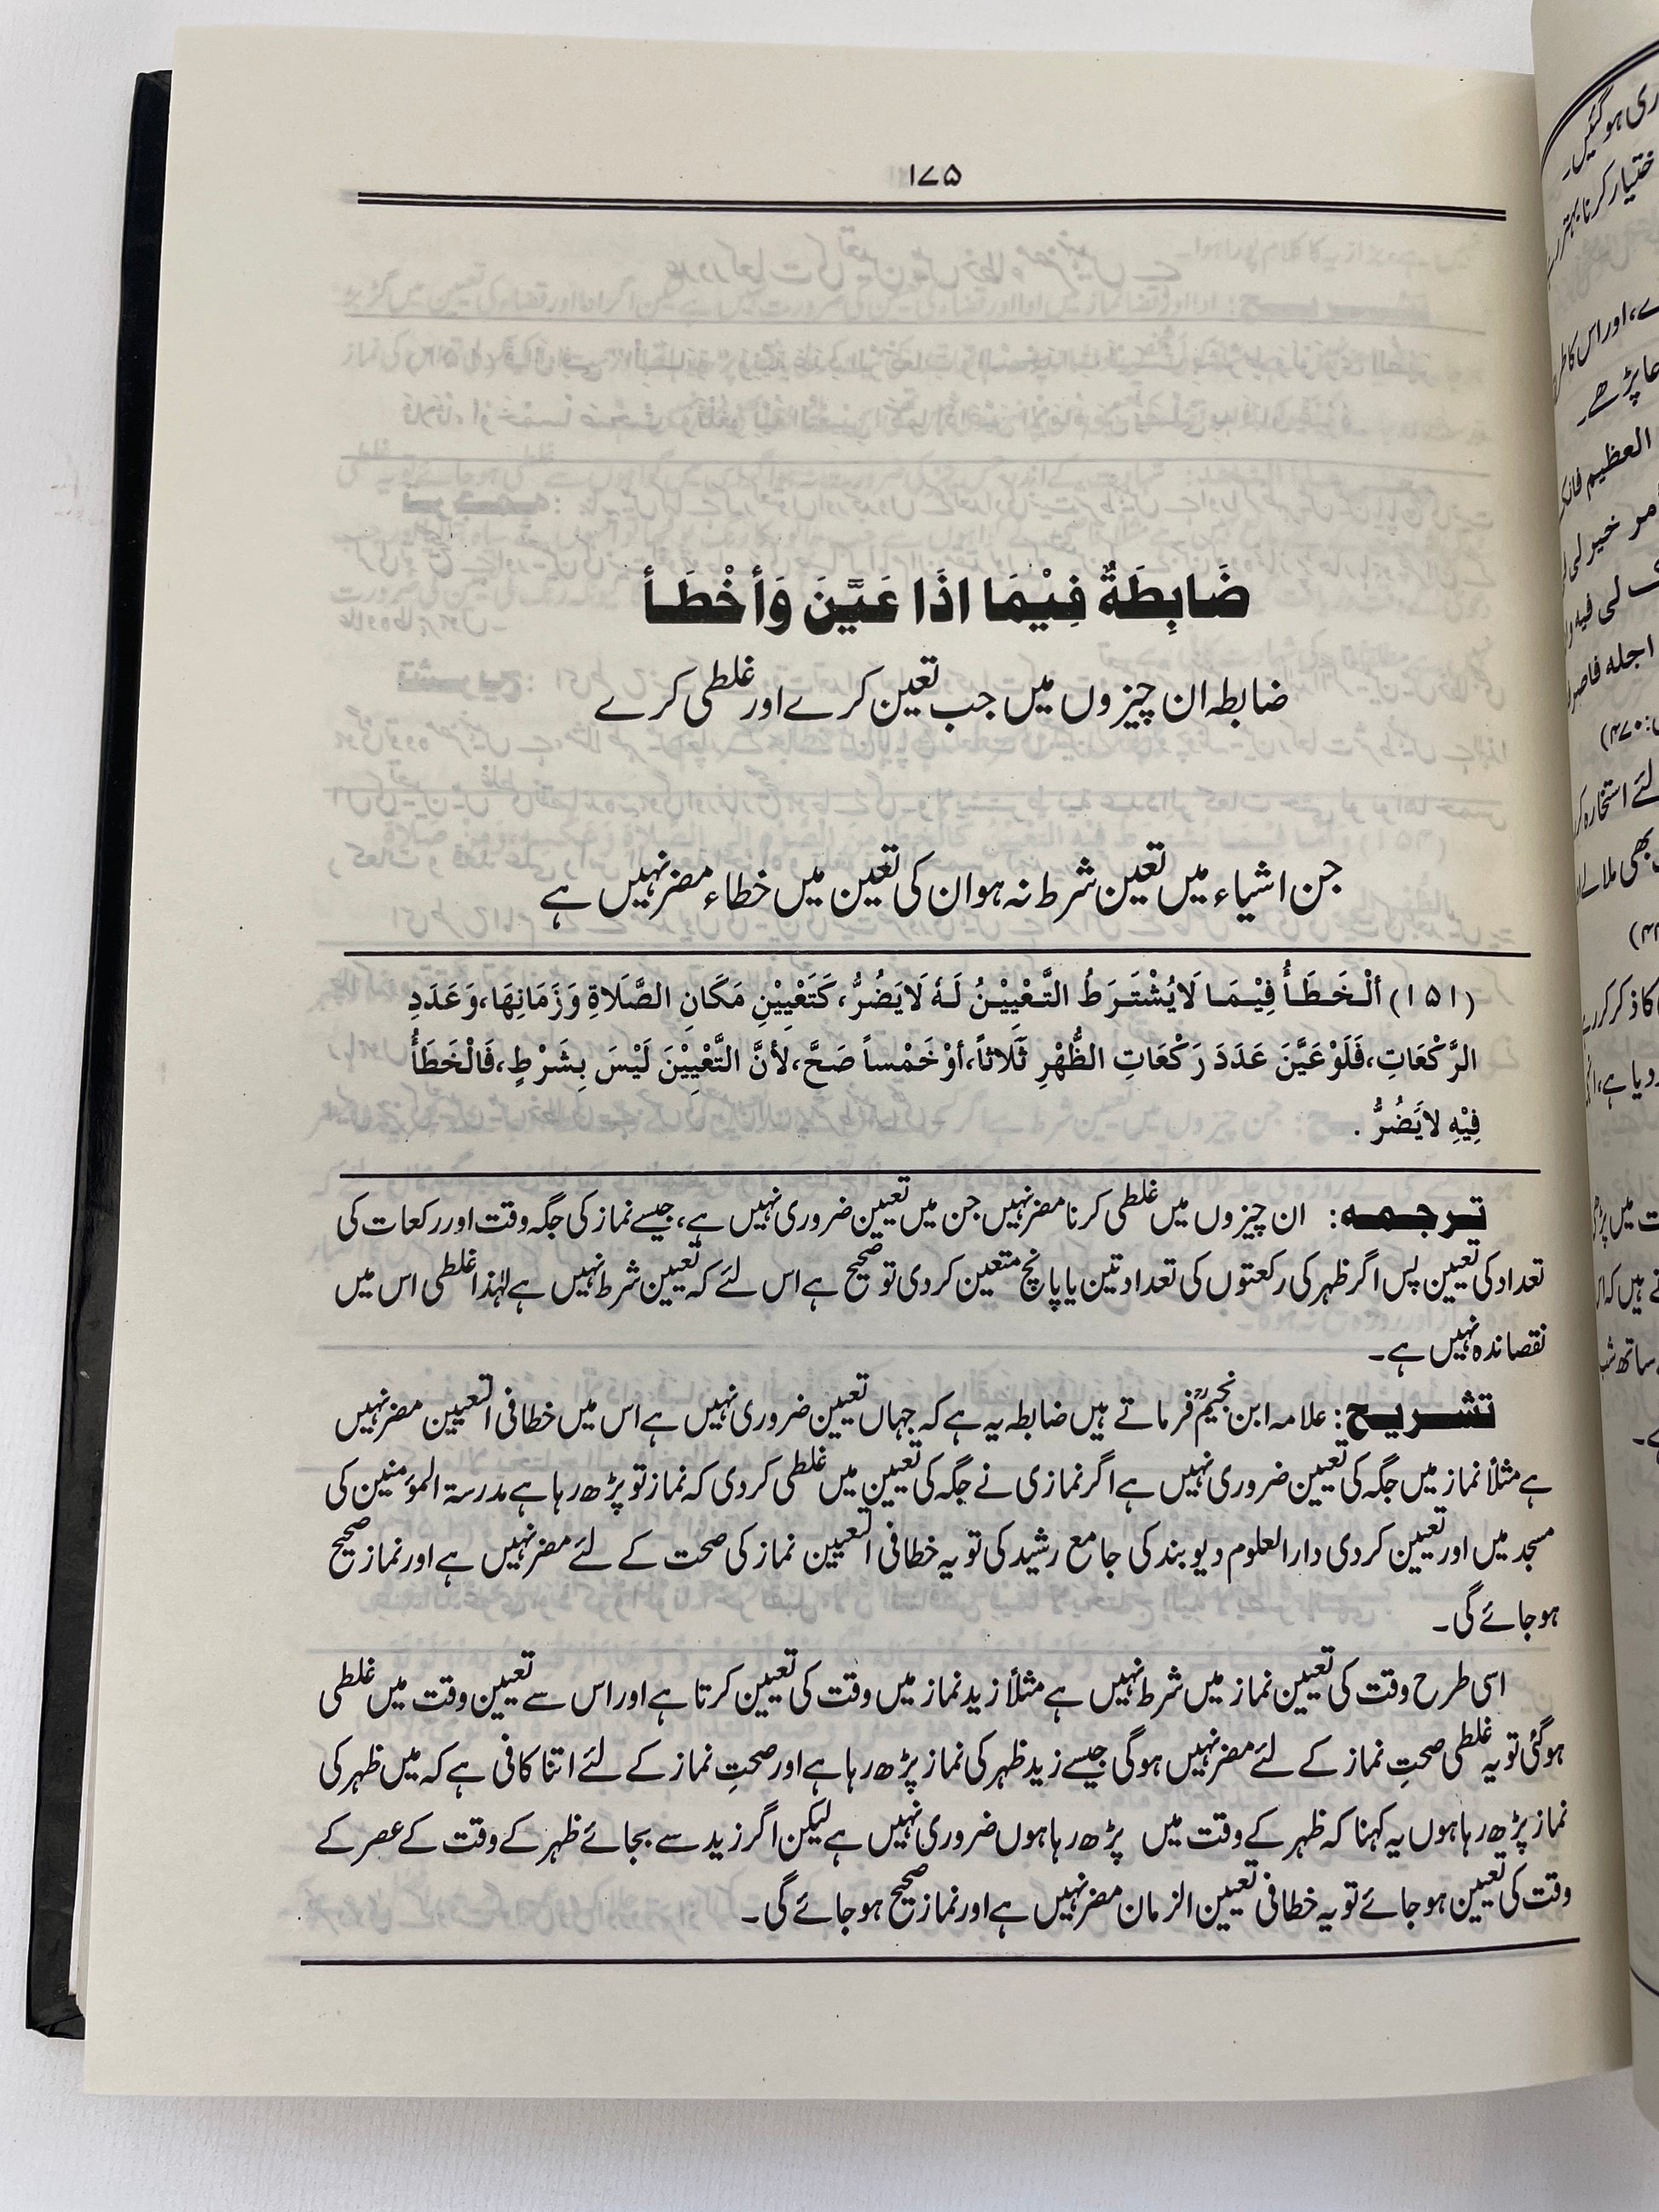 ۱۷۵
ضَابِطَةٌ فِيْمَا اذَا عَيَّنَ وَأخْطَأ
ضابطہ ان چیزوں میں جب تعین کرے اور غلطی کرے
جن اشیاء میں تعین شرط نہ ہو ان کی تعین میں خطاء مضر نہیں ہے
(۱۵۱) ألْخَطَأُ فِيْمَا لَايُشْتَرَطُ التَّعْيِيْنُ لَهٗ لَايَضُرُّ، كَتَعْيِيْنِ مَكَانِ الصَّلَاةِ وَزَمَانِهَا، وَعَدَدِ
الرَّكْعَاتِ، فَلَوْ عَيَّنَ عَدَدَ رَكْعَاتِ الظُّهْرِ ثَلَاثاً، أوْ خَمْساً صَحَّ، لأنَّ التَّعْيِيْنَ لَيْسَ بِشَرْطٍ، فَالْخَطَأُ
فِيْهِ لايَضُرُّ .
ترجمہ: ان چیزوں میں غلطی کرنا مضر نہیں جن میں تعیین ضروری نہیں ہے، جیسے نماز کی جگہ وقت اور رکعات کی
تعداد کی تعیین پس اگر ظہر کی رکعتوں کی تعداد تین یا پانچ متعین کردی تو صحیح ہے اس لئے کہ تعیین شرط نہیں ہے لہٰذا غلطی اس میں
نقصاندہ نہیں ہے۔
تشریح: علامہ ابن نجیمؒ فرماتے ہیں ضابطہ یہ ہے کہ جہاں تعیین ضروری نہیں ہے اس میں خطا فی التعیین مضر نہیں
ہے مثلاً نماز میں جگہ کی تعیین ضروری نہیں ہے اگر نمازی نے جگہ کی تعیین میں غلطی کردی کہ نماز تو پڑھ رہا ہے مدرسۃ المؤمنین کی
مسجد میں اور تعیین کردی دارالعلوم دیوبند کی جامع رشید کی تو یہ خطا فی التعیین نماز کی صحت کے لئے مضر نہیں ہے اور نماز صحیح
ہوجائے گی۔
اسی طرح وقت کی تعیین نماز میں شرط نہیں ہے مثلاً زید نماز میں وقت کی تعیین کرتا ہے اور اس سے تعیین وقت میں غلطی
ہوگئی تو یہ غلطی صحتِ نماز کے لئے مضر نہیں ہوگی جیسے زید ظہر کی نماز پڑھ رہا ہے اور صحتِ نماز کے لئے اتنا کافی ہے کہ میں ظہر کی
نماز پڑھ رہا ہوں یہ کہنا کہ ظہر کے وقت میں پڑھ رہا ہوں ضروری نہیں ہے لیکن اگر زید سے بجائے ظہر کے وقت کے عصر کے
وقت کی تعیین ہوجائے تو یہ خطا فی تعیین الزمان مضر نہیں ہے اور نماز صحیح ہوجائے گی۔